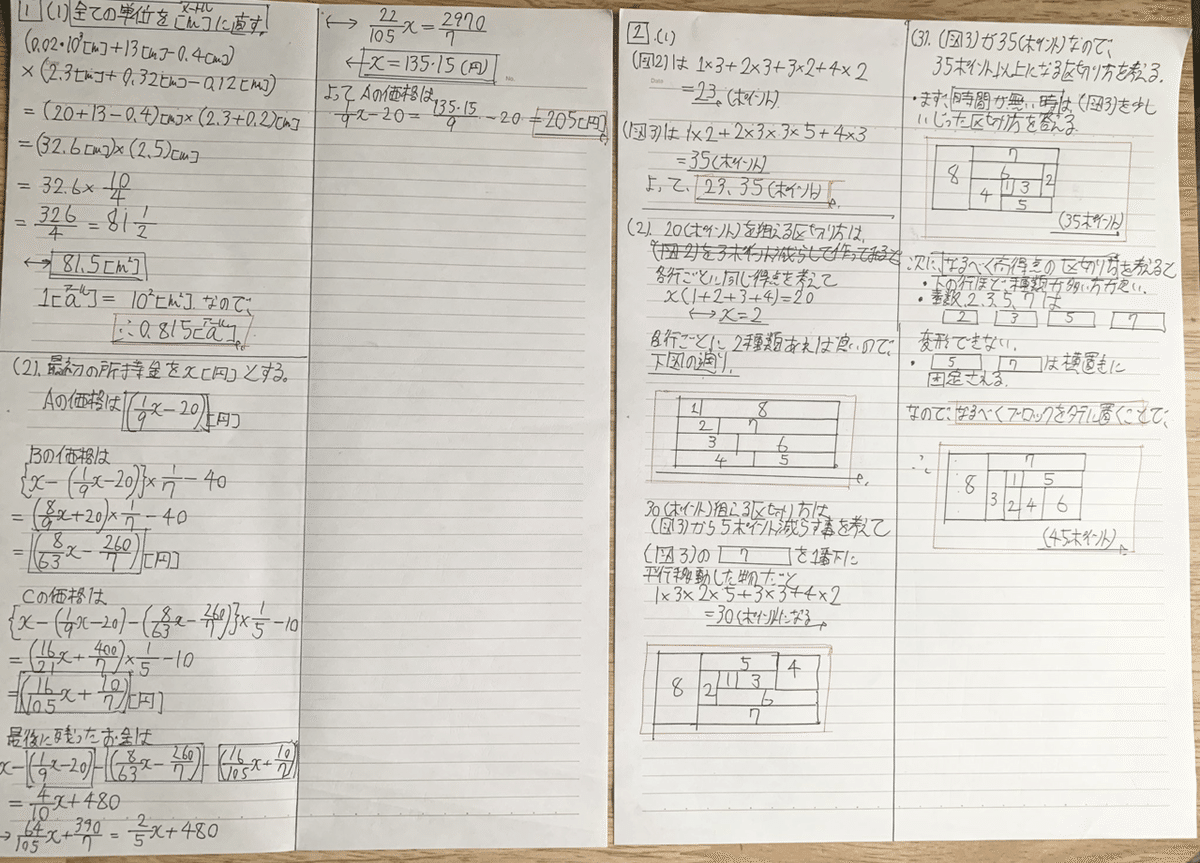 1 (1) 全ての単位を[m]に直す。
メートル
(0.02・10³[m]+13[m]-0.4[m])
×(2.3[m]+0.32[m]-0.12[m])
=(20+13-0.4)[m]×(2.3+0.2)[m]
=(32.6[m])×(2.5)[m]
=32.6×10/4
=326/4=81 1/2
↔ 81.5[m²]
1[a]=10²[m²]なので、
アール
∴0.815[a]
アール
(2). 最初の所持金をx[円]とする。
Aの価格は(1/9x-20)[円]
Bの価格は
{x-(1/9x-20)}×1/7-40
=(8/9x+20)×1/7-40
=(8/63x-260/7)[円]
Cの価格は
{x-(1/9x-20)-(8/63x-260/7)}×1/5-10
=(16/21x+400/7)×1/5-10
=(16/105x+10/7)[円]
最後に残ったお金は
x-(1/9x-20)-(8/63x-260/7)-(16/105x+10/7)
=4/10x+480
→64/105x+390/7=2/5x+480
↔ 22/105x=2970/7
← x=135・15(円)
よってAの価格は
1/9x-20=135・15/9-20=205[円]
No.
2.(1)
(図2)は 1×3+2×3+3×2+4×2
Date
=23(ポイント)
(図3)は 1×2+2×3×3×5+4×3
=35(ポイント)
よって、23、35(ポイント)
(2). 20(ポイント)を狙える区切り方は、
(図2)を3ポイント減らして作ってみると
各行ごとに同じ得点を考えて
x(1+2+3+4)=20
↔ x=2
各行ごとに2種類あれば良いので、
下図の通り。
1 8
2 7
3 6
4 5
30(ポイント)狙える区切り方は
(図3)から5ポイント減らす事を考えて
(図3)の 7 を1番下に
平行移動した物だこと
1×3×2×5+3×3+4×2
=30(ポイント)になる
5 4
8 2 1 3
6
7
(3). (図3)が35(ポイント)なので、
35ポイント以上になる区切り方を考える。
・まず、時間が無い時は(図3)を少し
いじった区切り方を答える
7
8 6
4 1 3 2
5
(35ポイント)
次に、なるべく高得点の区切り方を考えると
・下の行ほど、種類が多い方が良い。
・素数、2、3、5、7は
2 3 5 7
変形できない。
・ 5 7 は横置きに
固定される。
なので、なるべくブロックをタテに置くことで、
∴
7
8 3 1 5
2 4 6
(45ポイント)